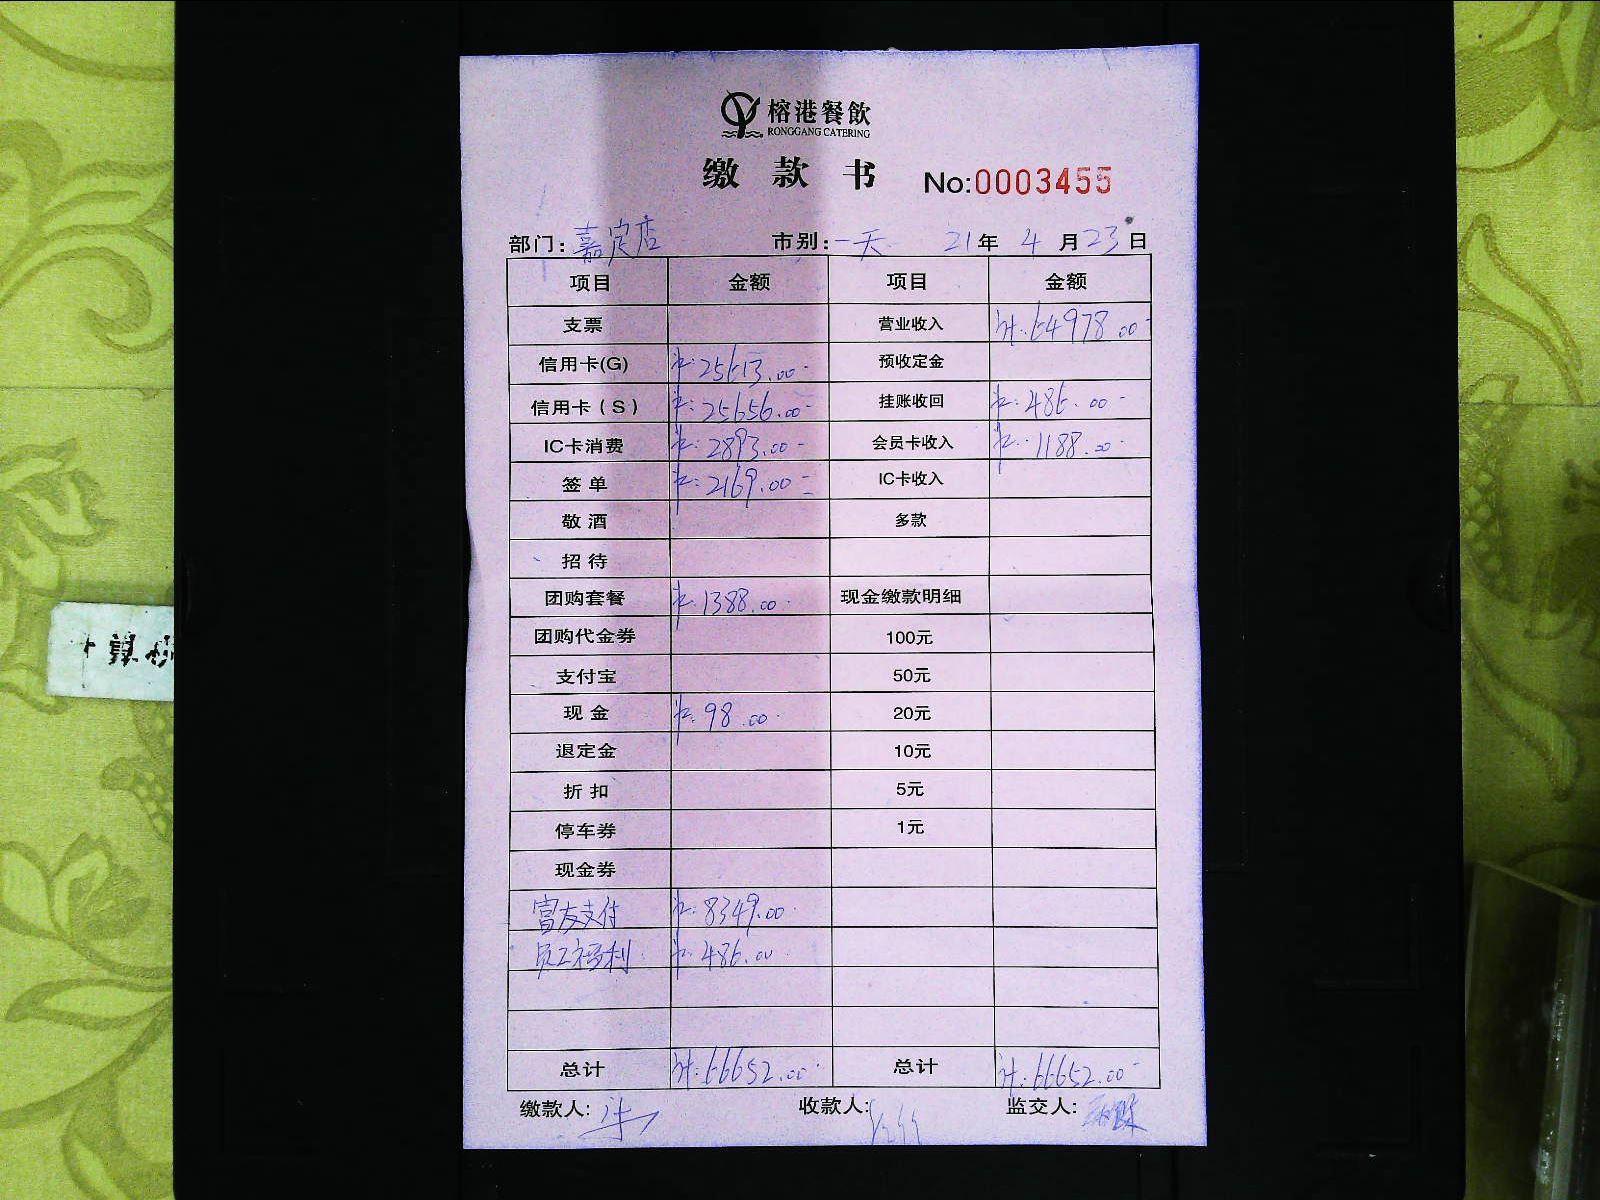 榕港餐飲
RONGGANG CATERING
缴款书 No:0003455
部门:嘉定店 市别:一天 21年4月23日
项目 金额 项目 金额
支票 营业收入 计:64978.00-
信用卡(G) 25613.00- 预收定金
信用卡(S) 25656.00- 挂账收回 486.00-
IC卡消费 2893.00- 会员卡收入 1188.00-
签单 2169.00- IC卡收入
敬酒 多款
招待
团购套餐 1388.00- 现金缴款明细
团购代金券 100元
支付宝 50元
现金 98.00- 20元
退定金 10元
折扣 5元
停车券 1元
现金券
富友支付 8349.00-
员工福利 486.00-
总计 计:66652.00- 总计 计:66652.00-
缴款人: 收款人: 监交人: